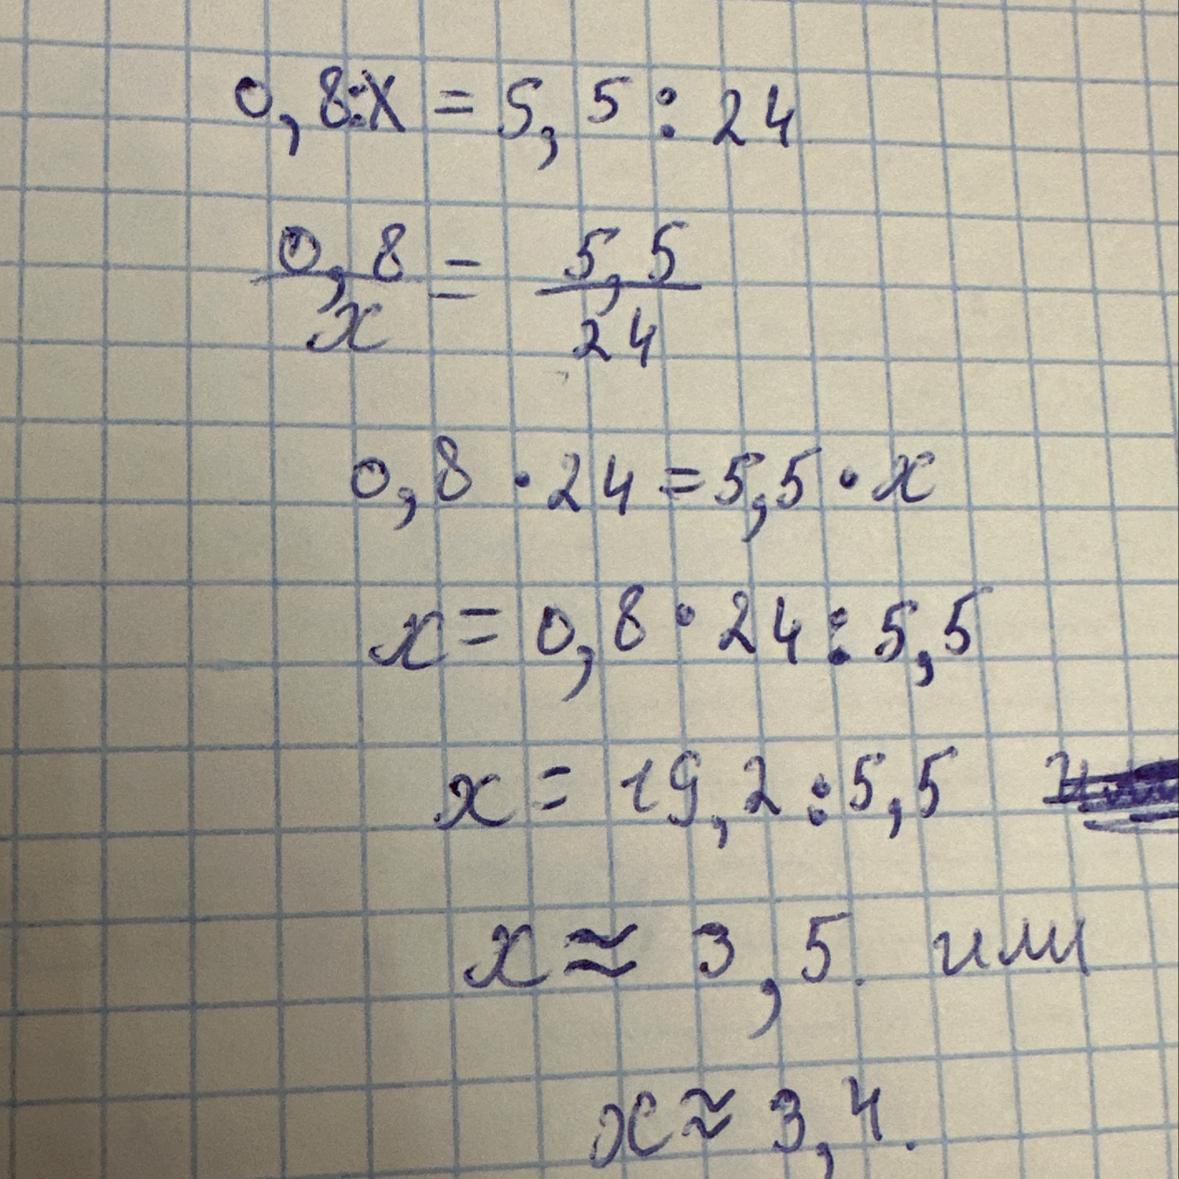 0,8:x = 5,5 : 24
0,8/x = 5,5/24
0,8 · 24 = 5,5 · x
x = 0,8 · 24 : 5,5
x = 19,2 : 5,5
x ≈ 3,5. или
x ≈ 3,4.